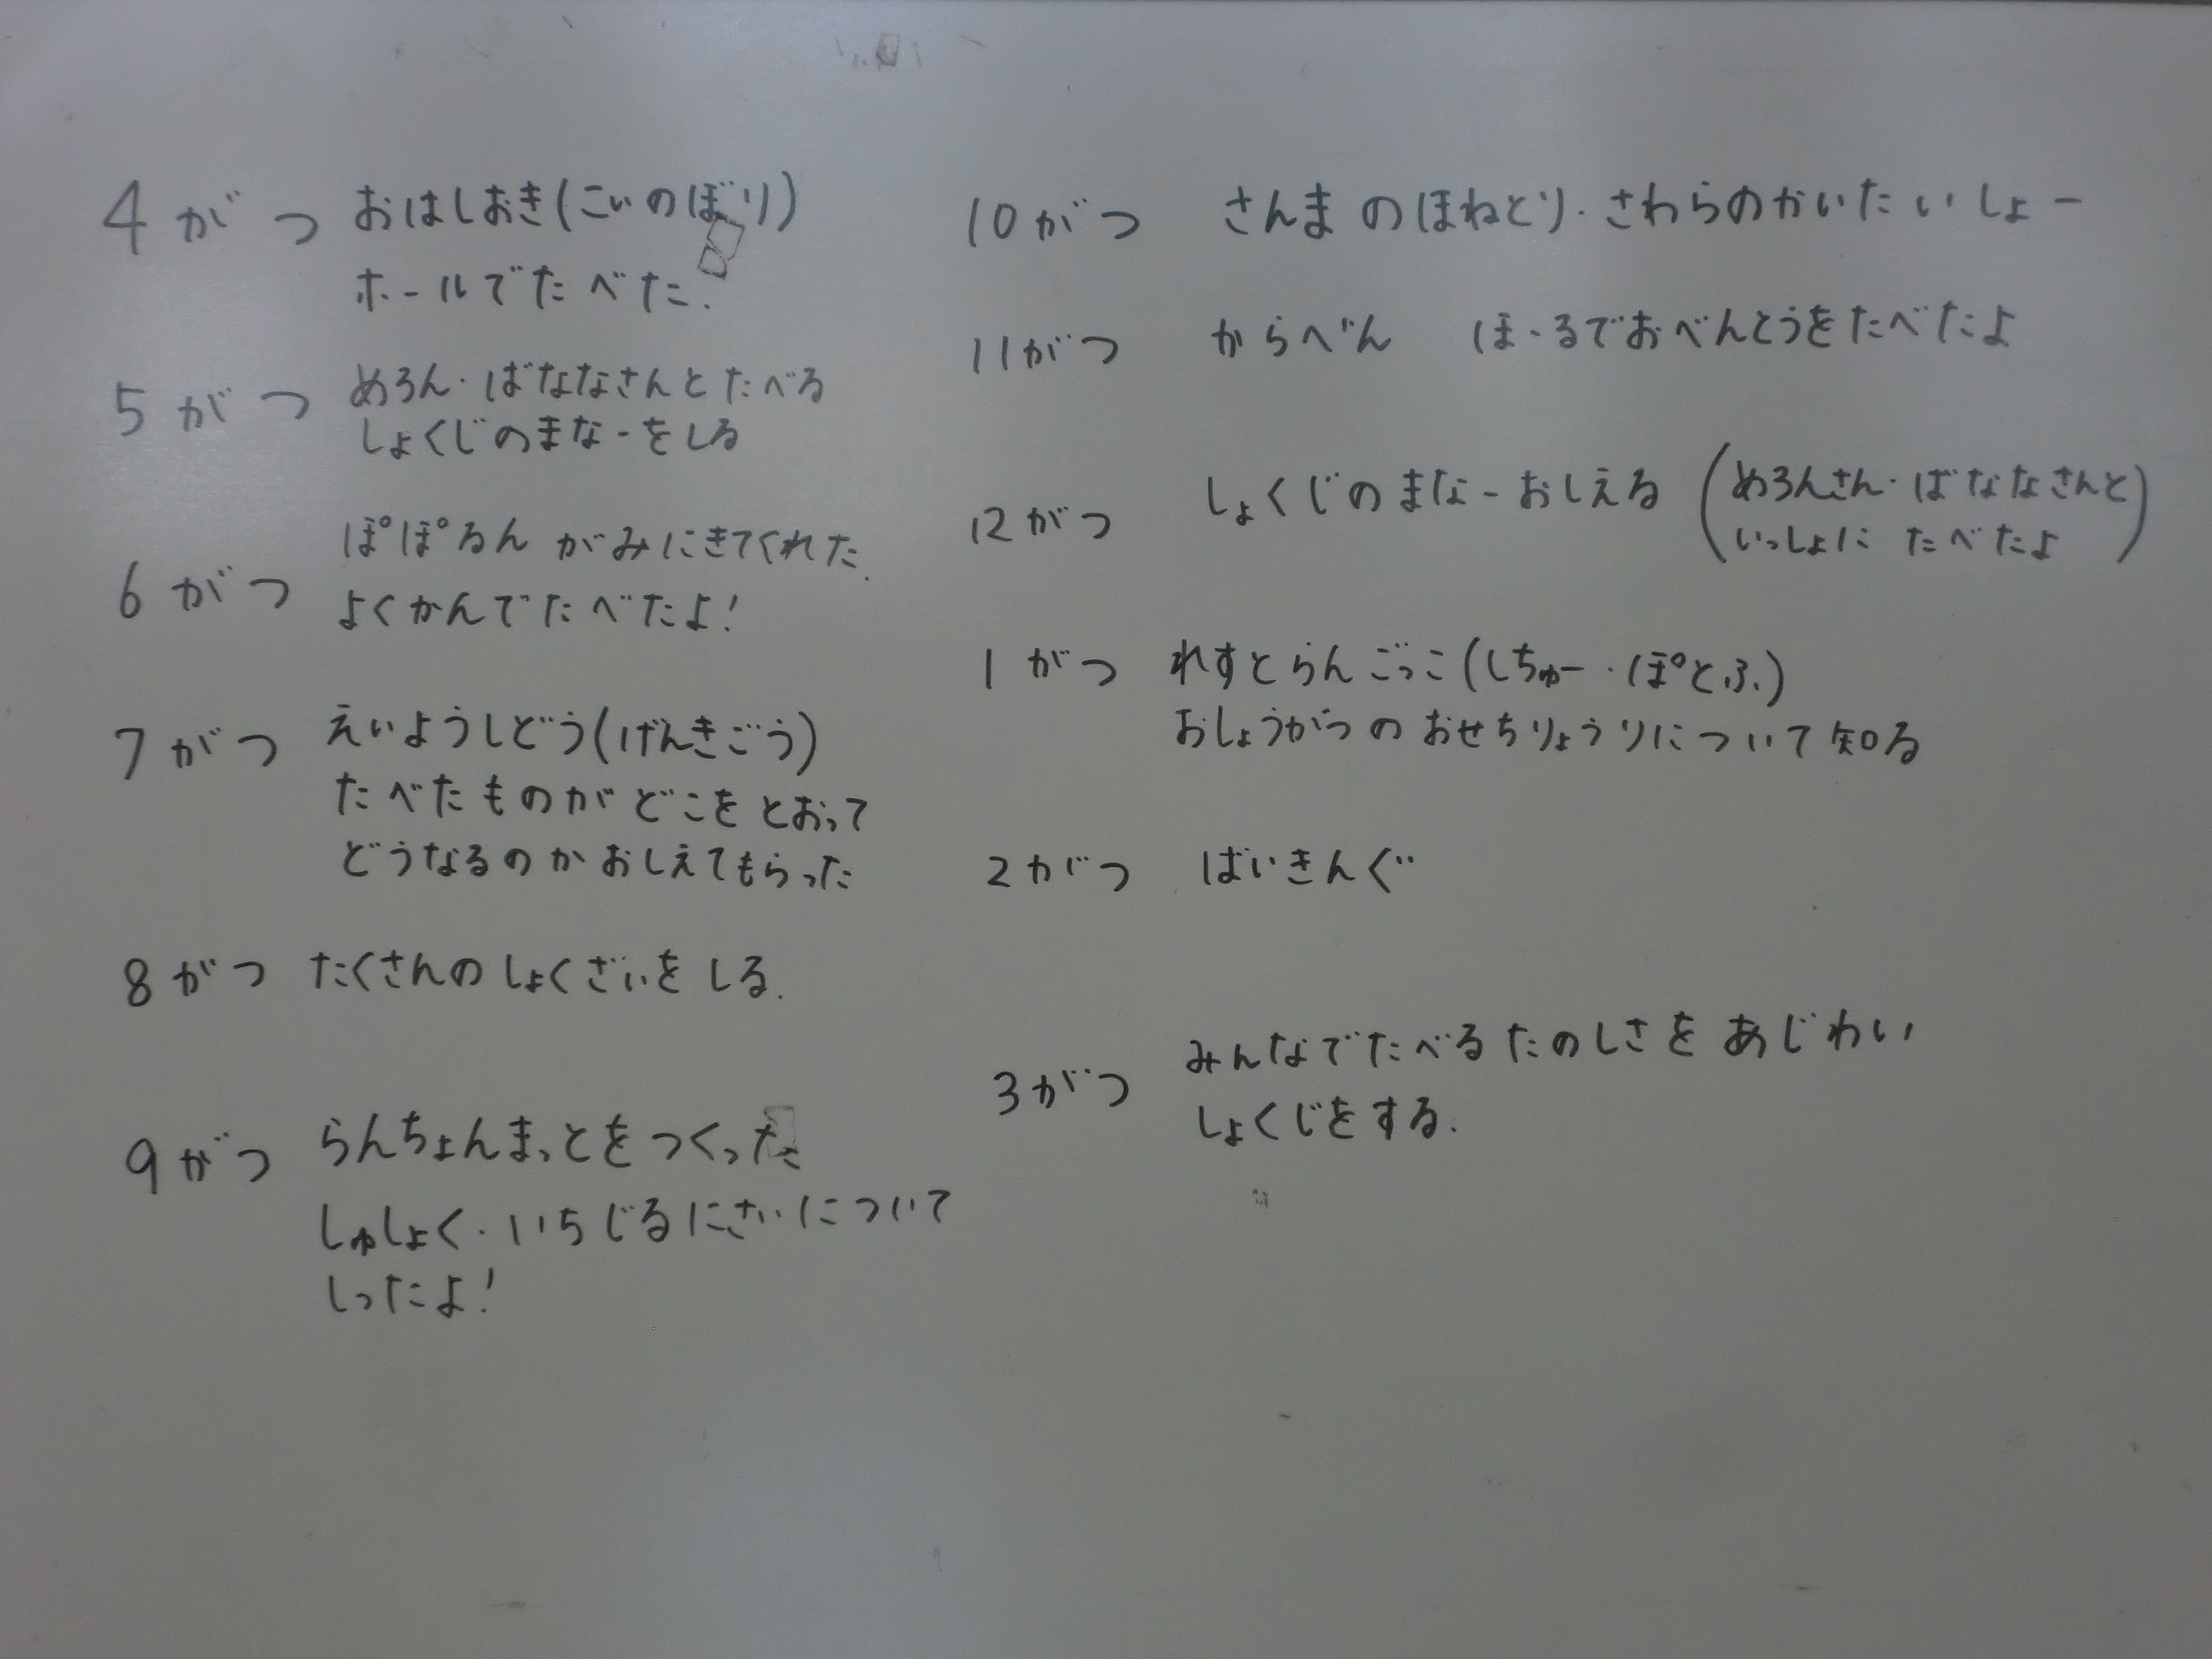 4がつ おはしおき(こいのぼり)
ホールでたべた.
5がつ めろん・ばななさんとたべる
しょくじのまなーをしる
6がつ ぽぽるんがみにきてくれた.
よくかんでたべたよ!
7がつ えいようしどう(げんきごう)
たべたものがどこをとおって
どうなるのかおしえてもらった
8がつ たくさんのしょくざいをしる.
9がつ らんちょんまっとをつくった
しゅしょく・いちじるにさいについて
しったよ!
10がつ さんまのほねとり・さわらのかいたいしょー
11がつ からべん ほーるでおべんとうをたべたよ
12がつ しょくじのまなーおしえる (めろんさん・ばななさんと
いっしょにたべたよ)
1がつ れすとらんごっこ(しちゅー・ぽとふ)
おしょうがつのおせちりょうりについて知る
2がつ ばいきんぐ
3がつ みんなでたべるたのしさをあじわい
しょくじをする.